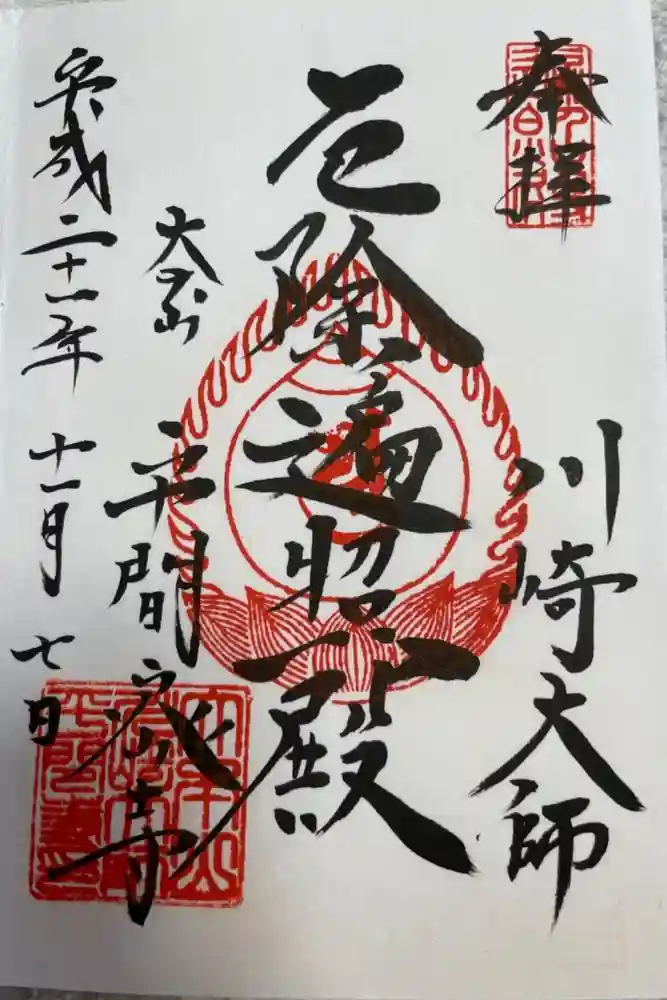 奉拝
川崎大師
厄除遍照殿
大本山
平間寺
平成二十一年十一月七日